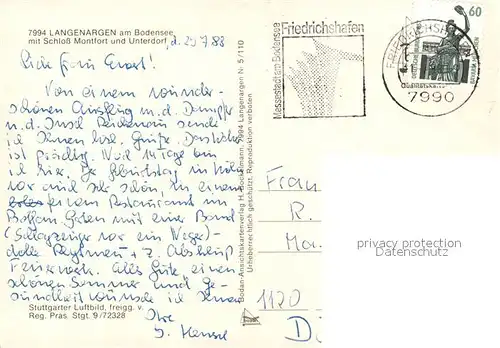 7994 LANGENARGEN am Bodensee
mit Schloß Montfort und Unterdorf
d. 25.7.88
Liebe Frau Ernst!
Von einem wunder-
schönen Ausflug m. d. Dampfer
z. d. Insel Reichenau sende
ich Ihnen herzl. Grüße. Das Wetter
ist prächtig. Noch 14 Tage bin
ich hier. Der Geburtstag in
war auch sehr schön, in einem
feinen Restaurant im
Garten mit einer Band
(Schlagzeuger war ein Neger)
z. Abschluß
Feuerwerk. Alles Gute, einen
schönen Sommer und Ge-
sundheit wünscht ich Ihnen
Ihre
Stuttgarter Luftbild, freigg. v.
Reg. Präs. Stgt. 9/72328
Bodan-Ansichtskartenverlag H. 7994 Langenargen Nr. 5/110
Urheberrechtlich geschützt. Reproduktion verboten
Friedrichshafen
Messestadt am Bodensee
FRIEDRICHSHAFEN
7990
60
DEUTSCHE BUNDESPOST
Frau
R.
1170
privacy protection
Datenschutz